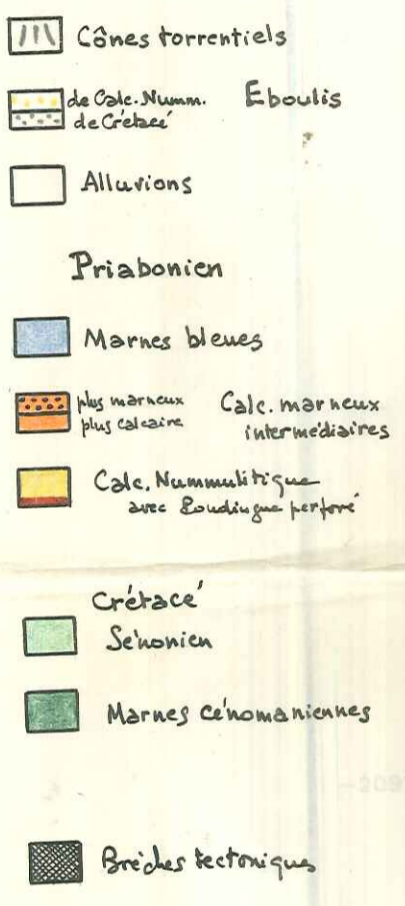 Cônes torrentiels
de Calc. Numm. Eboulis
de Crétacé
Alluvions
Priabonien
Marnes bleues
plus marneux Calc. marneux
plus calcaire intermédiaires
Calc. Nummulitique
avec Poudingue perforé
Crétacé
Sénonien
Marnes cénomaniennes
Brèches tectoniques